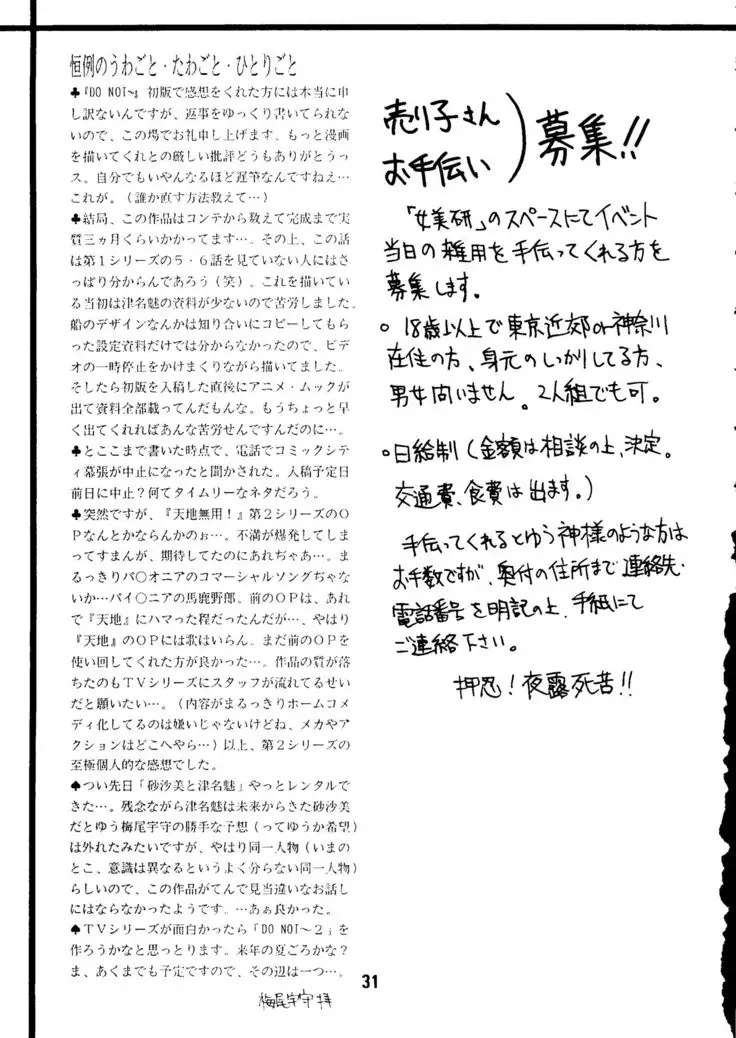 恒例のうわごと・たわごと・ひとりごと
♣『DO NOT～』初版で感想をくれた方には本当に申
し訳ないんですが、返事をゆっくり書いてられな
いので、この場でお礼申し上げます。もっと漫画
を描いてくれとの厳しい批評どうもありがとうっ
ス。自分でもいやんなるほど遅筆なんですねえ…
これが。（誰か直す方法教えて…）
♣結局、この作品はコンテから数えて完成まで実
質三ヵ月くらいかかってます…。その上、この話
は第１シリーズの５・６話を見ていない人にはさ
っぱり分からんであろう（笑）。これを描いてい
る当初は津名魅の資料が少ないので苦労しました。
船のデザインなんかは知り合いにコピーしてもら
った設定資料だけでは分からなかったので、ビデ
オの一時停止をかけまくりながら描いてました。
そしたら初版を入稿した直後にアニメ・ムックが
出て資料全部載ってんだもんな。もうちょっと早
く出てくれればあんな苦労せんですんだのに…。
♣とここまで書いた時点で、電話でコミックシテ
ィ幕張が中止になったと聞かされた。入稿予定日
前日に中止？何てタイムリーなネタだろう。
♣突然ですが、『天地無用！』第２シリーズのＯ
Ｐなんとかならんかのぉ…。不満が爆発してしま
ってすまんが、期待してたのにあれぢゃあ…。ま
るっきりパ〇オニアのコマーシャルソングぢゃな
いか…パイ〇ニアの馬鹿野郎。前のＯＰは、あれ
で『天地』にハマった程だったんだが…、やはり
『天地』のＯＰには歌はいらん。まだ前のＯＰを
使い回してくれた方が良かった…。作品の質が落
ちたのもＴＶシリーズにスタッフが流れてるせい
だと願いたい…。（内容がまるっきりホームコメ
ディ化してるのは嫌いじゃないけどね、メカやア
クションはどこへやら…）以上、第２シリーズの
至極個人的な感想でした。
♠つい先日「砂沙美と津名魅」やっとレンタルで
きた…。残念ながら津名魅は未来からきた砂沙美
だとゆう梅尾宇守の勝手な予想（ってゆうか希望）
は外れたみたいですが、やはり同一人物（いまの
とこ、意識は異なるというよく分らない同一人物）
らしいので、この作品がてんで見当違いなお話し
にはならなかったようです。…あぁ良かった。
♠ＴＶシリーズが面白かったら「DO NOT～２」を
作ろうかなと思っとります。来年の夏ごろかな？
ま、あくまでも予定ですので、その辺は一つ…。
梅尾宇守拝
売り子さん
お手伝い
)募集!!
「女美研」のスペースにてイベント
当日の雑用を手伝ってくれる方を
募集します。
○18歳以上で東京近郊or神奈川
在住の方、身元のしっかりしてる方、
男女問いません。2人組でも可。
○日給制（金額は相談の上、決定。
交通費、食費は出ます。）
手伝ってくれるとゆう神様のような方は
お手数ですが、奥付の住所まで連絡先・
電話番号を明記の上、手紙にて
ご連絡下さい。
押忍！夜露死苦!!
31